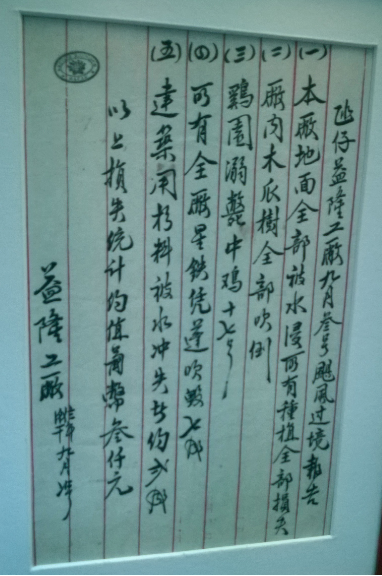 氹仔益隆工廠九月叁号颶風过境報告
(一)本廠地面全部被水浸所有種植全部損失
(二)廠内木瓜樹全部吹倒
(三)鷄園溺斃中鸡十七号
(四)所有全廠星鉄凭蓬吹毀七成
(五)建築用杉料被水冲失去約弍成
以上損失統计約值葡幣叁仟元
益隆工廠 九月